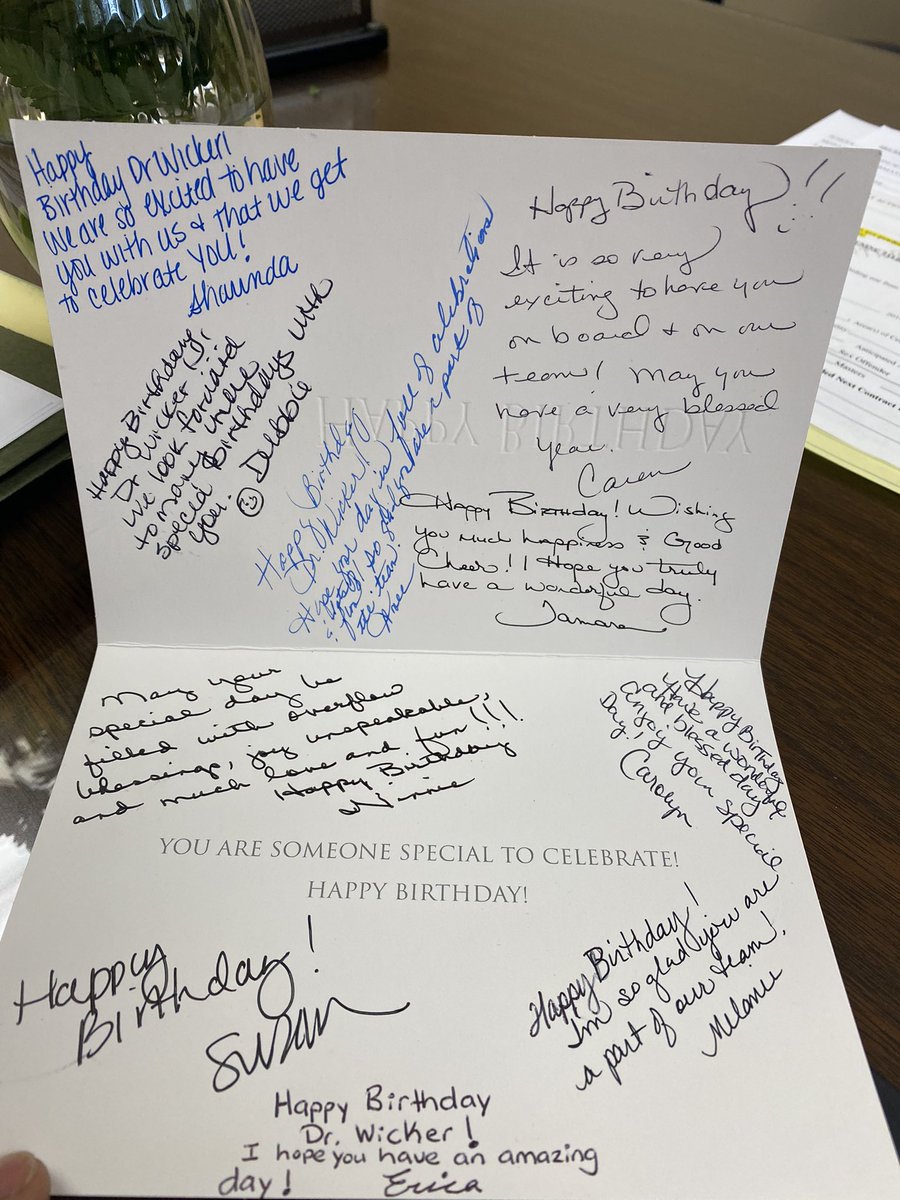 Happy
Birthday Dr Wicker!
We are so excited to have
you with us & that we get
to celebrate YOU!
Shaunda
Happy Birthday!! :)
It is so very
exciting to have you
on board & on our
team! May you
have a very blessed
year.
Caren
Happy Birthday
Dr. Wicker! We
We look forward
to many more
special Birthdays with
you. Debbie
Happy Birthday
Dr. Wicker!
Hope your day is full of celebrations
& fun! So glad you are a part of
the team!
Happy Birthday! Wishing
you much happiness & Good
Cheer!! I Hope you truly
have a wonderful day.
Tamara
HAPPY BIRTHDAY
May your
special day be
filled with overflow
blessings, joy unspeakable,
and much love and fun!!!
Happy Birthday!!
Ninnie
Happy Birthday
Have a wonderful
and blessed day
enjoy your special
Day!
Carolyn
YOU ARE SOMEONE SPECIAL TO CELEBRATE!
HAPPY BIRTHDAY!
Happy
Birthday!
Susan
Happy Birthday!
I'm so glad you are
a part of our team!
Melanie
Happy Birthday
Dr. Wicker!
I hope you have an amazing
day! Erica
Sex Offender
Masters